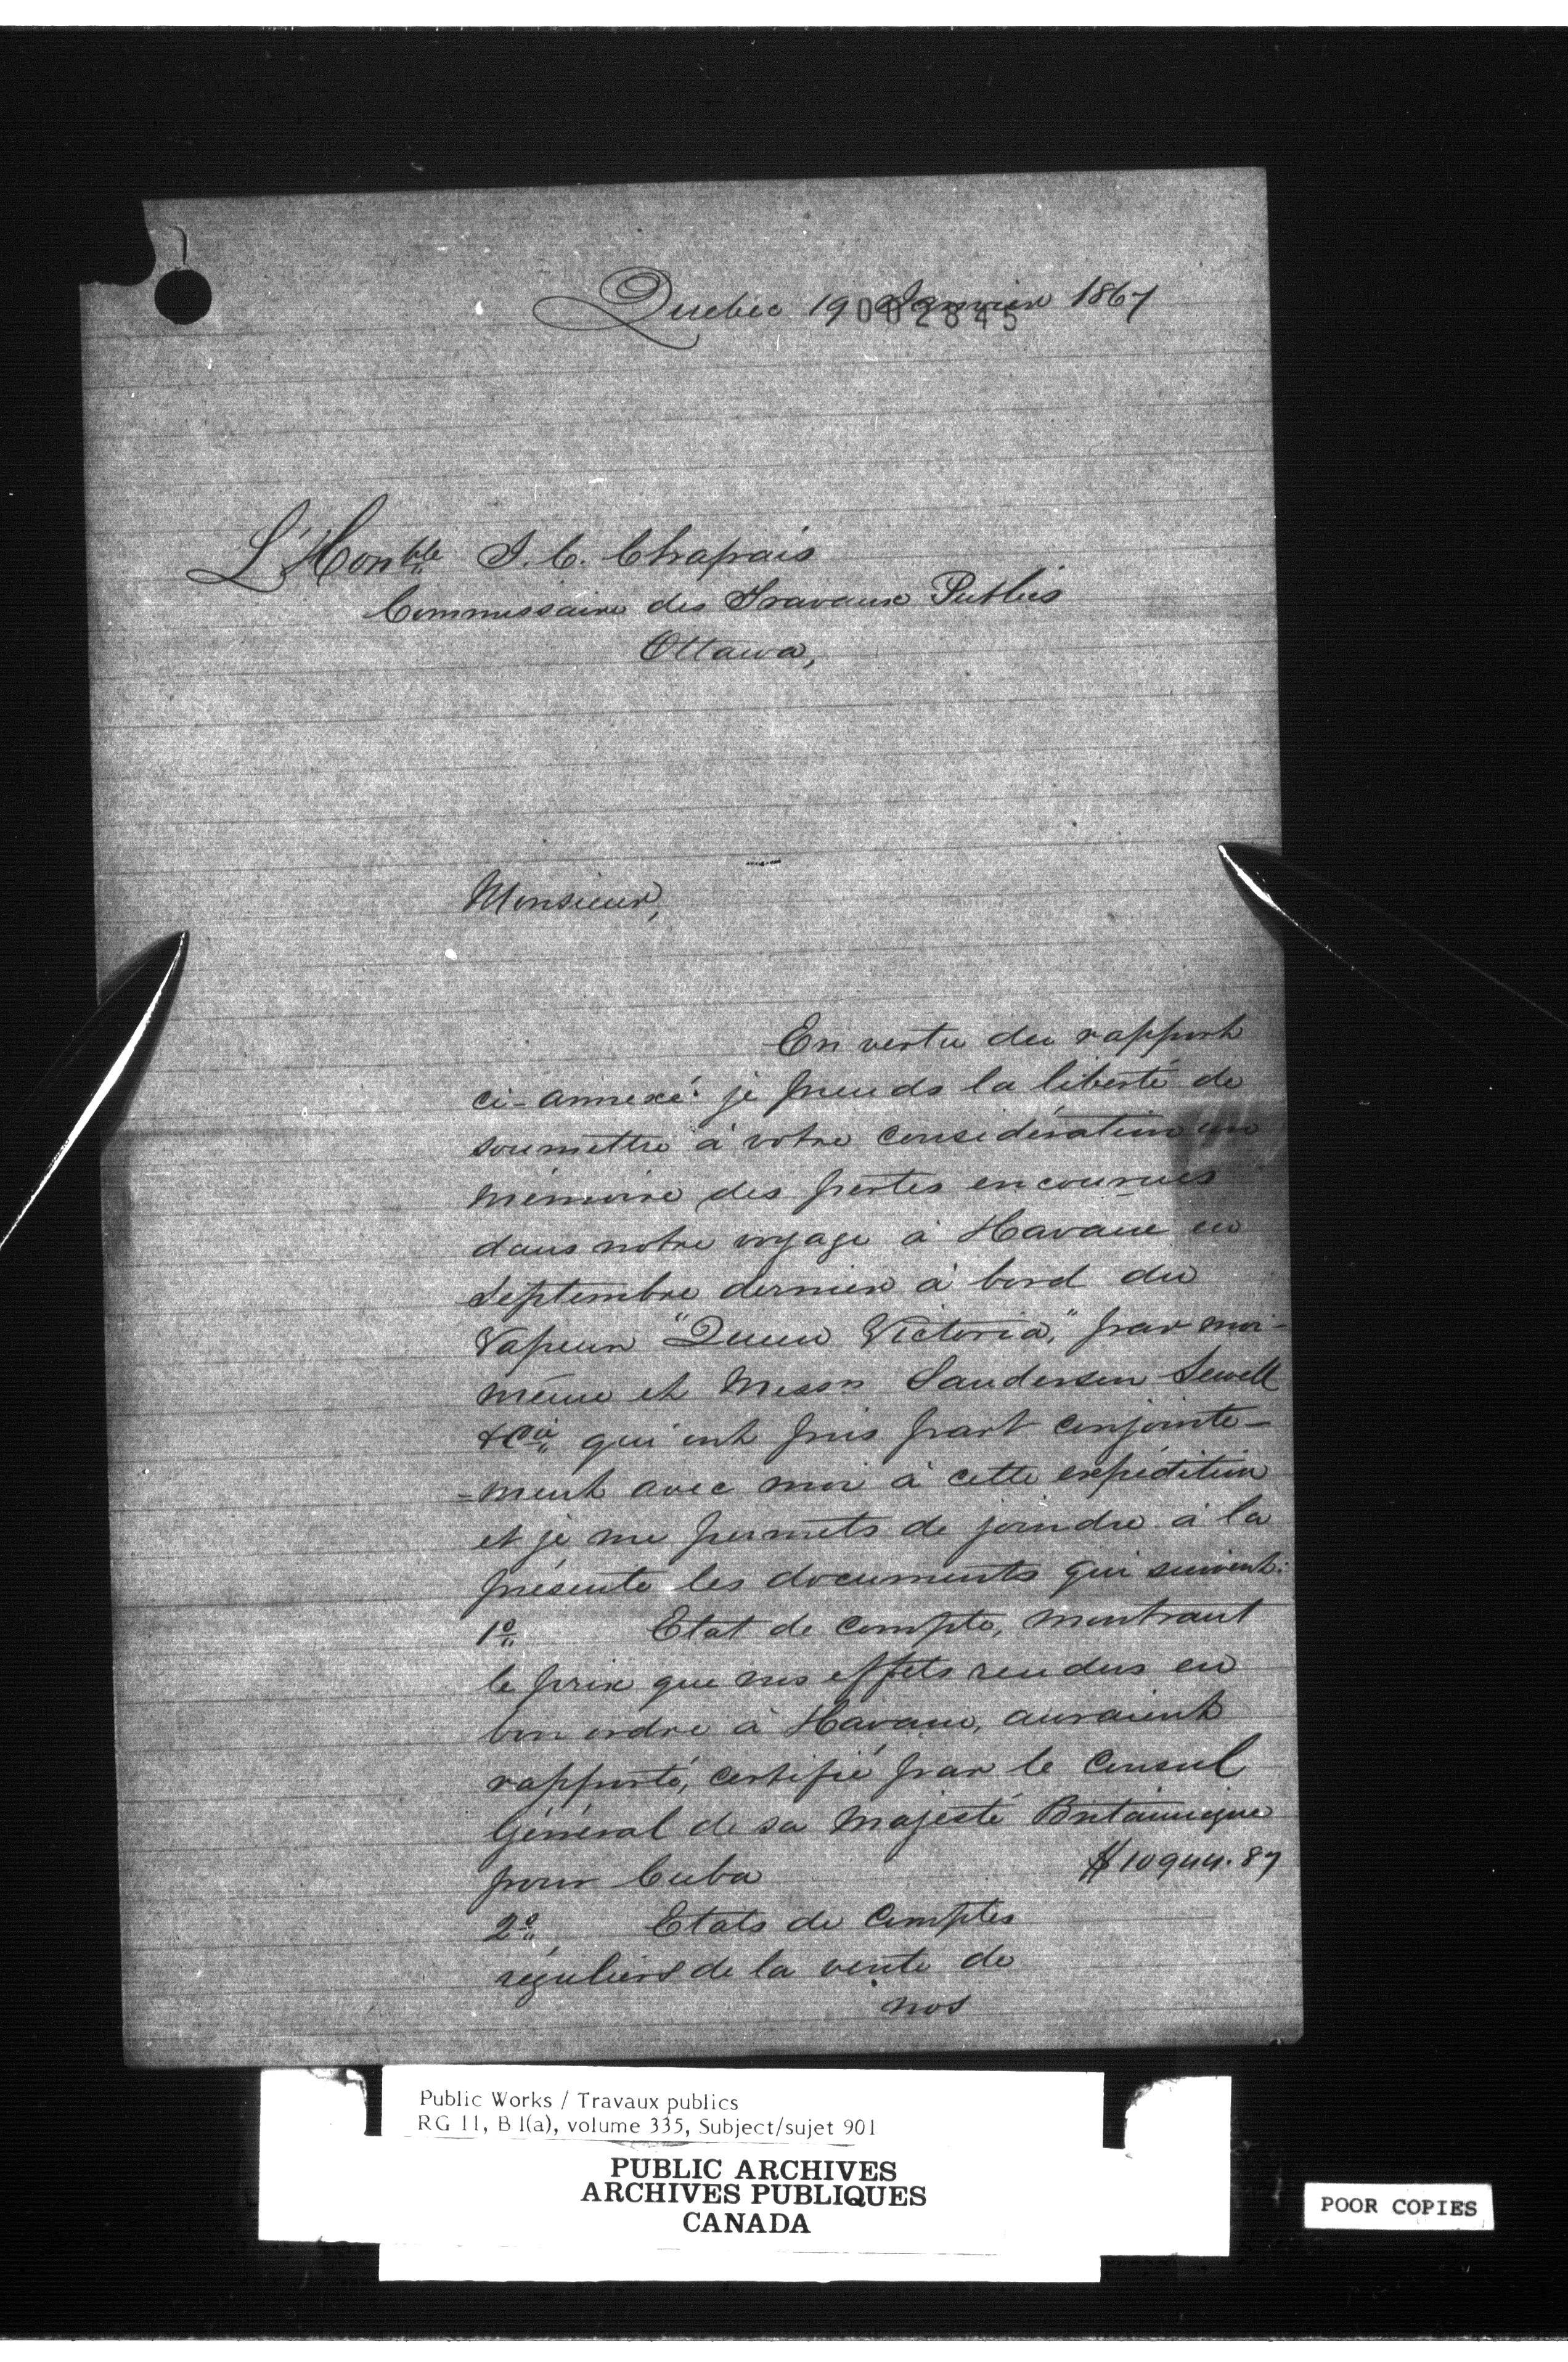 Quebec 19 Janvier 1867
002845
L'Honble J. C. Chapais
Commissaire des Travaux Publics
Ottawa,
Monsieur,
En vertu du rapport
ci-annexé: je prends la liberté de
soumettre à votre considération un
mémoire des pertes encourues
dans notre voyage à Havane en
Septembre dernier à bord du
Vapeur "Queen Victoria," par moi-
même et Messrs Sanderson Sewell
& Cie qui ont pris part conjointe-
=ment avec moi à cette expédition
et je me permets de joindre à la
présente les documents qui suivent:
1o Etat de compte, montrant
le prix que nos effets rendus en
bon ordre à Havane, auraient
rapporté, certifié par le Consul
Général de sa Majesté Britannique
pour Cuba $10944.87
2o Etats de Comptes
réguliers de la vente de
nos
Public Works / Travaux publics
RG 11, B 1(a), volume 335, Subject/sujet 901
PUBLIC ARCHIVES
ARCHIVES PUBLIQUES
CANADA
POOR COPIES